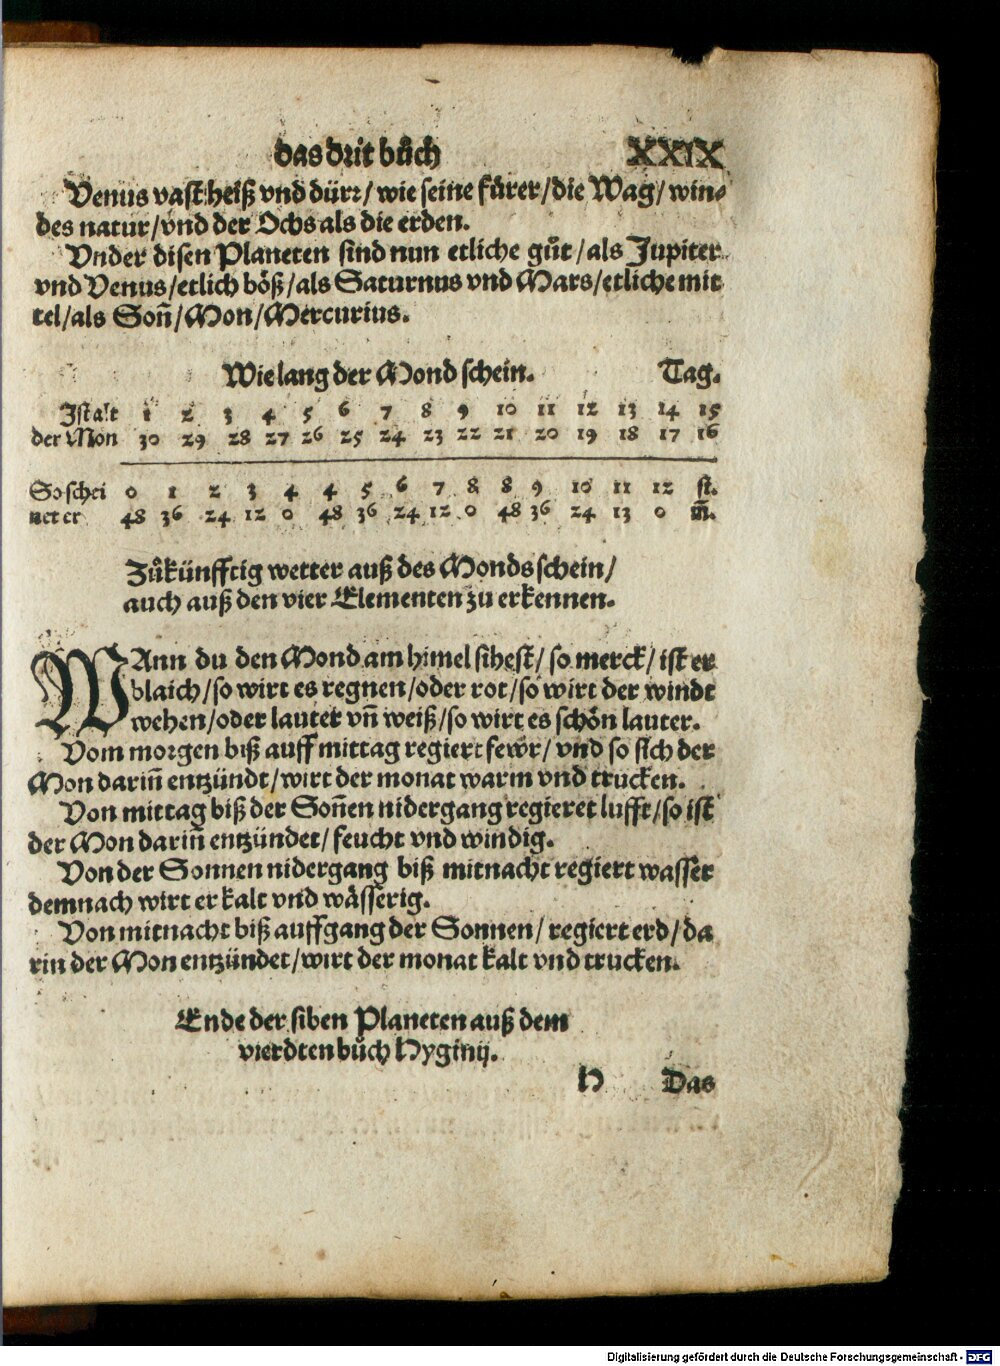 das drit bůch XXIX
Venus vast heiß vnd dürr/ wie seine fürer/ die Wag/ win⸗
des natur/ vnd der Ochs als die erden.
Vnder disen Planeten sind nun etliche gůt/ als Jupiter
vnd Venus/ etlich böß/ als Saturnus vnd Mars/ etliche mit
tel/ als Soñ/ Mon/ Mercurius.
Wie lang der Mond schein. Tag.
Ist alt 1 2 3 4 5 6 7 8 9 10 11 12 13 14 15
der Mon 30 29 28 27 26 25 24 23 22 21 20 19 18 17 16
So schei 0 1 2 3 4 4 5 6 7 8 8 9 10 11 12 st.
net er 48 36 24 12 0 48 36 24 12 0 48 36 24 13 0 m̃.
Zůkünfftig wetter auß des Monds schein/
auch auß den vier Elementen zu erkennen.
WAnn du den Mond am himel sihest/ so merck/ ist er
blaich/ so wirt es regnen/ oder rot/ so wirt der windt
wehen/ oder lauter vñ weiß/ so wirt es schön lauter.
Vom morgen biß auff mittag regiert fewr/ vnd so sich der
Mon dariñ entzündt/ wirt der monat warm vnd trucken.
Von mittag biß der Soñen nidergang regieret lufft/ so ist
der Mon dariñ entzündet/ feucht vnd windig.
Von der Sonnen nidergang biß mitnacht regiert wasser
demnach wirt er kalt vnd wässerig.
Von mitnacht biß auffgang der Sonnen/ regiert erd/ da
rin der Mon entzündet/ wirt der monat kalt vnd trucken.
Ende der siben Planeten auß dem
vierdten bůch Hyginij.
H Das
Digitalisierung gefördert durch die Deutsche Forschungsgemeinschaft - DFG